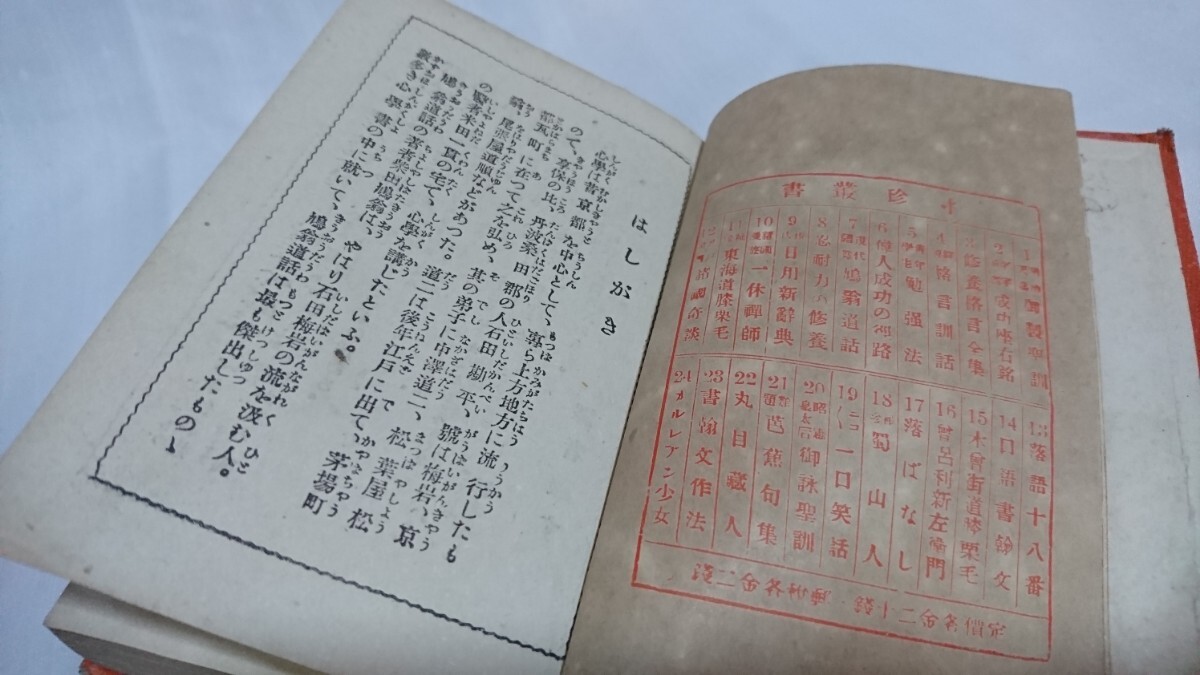 はしがき
心學は昔京都を中心として、專ら上方地方に流行したも
ので、享保の比、丹波桑田郡の人石田勘平、號は梅岩、京
都瓦町に在つて之を弘め、其の弟子に中澤道二、松葉屋松
翁、尾張屋道順などがあつた。道二は後年江戸に出で、茅場町
の醫者米田一貫の宅で、心學を講じたといふ。
鳩翁道話の著者柴田鳩翁は、やはり石田梅岩の流を汲む人。
數多き心學書の中に就いて、鳩翁道話は最も傑出したものゝ
珍叢書
成功座右銘
3 修養格言全集
4 格言訓話
5 勉强法
6 偉人成功の徑路
7 鳩翁道話
8 忍耐力の修養
9 日用新辭典
10 一休禪師
東海道膝栗毛
奇談
13 落語十八番
14 口語書翰文
15 木曾街道膝栗毛
16 曾呂利新左衞門
17 落ばなし
18 蜀山人
19 ニコ〱一口笑話
20 御詠聖訓
21 芭蕉句集
22 丸目藏人
23 書翰文作法
24 カルレアン少女
定價各金二十錢 郵稅各金二錢